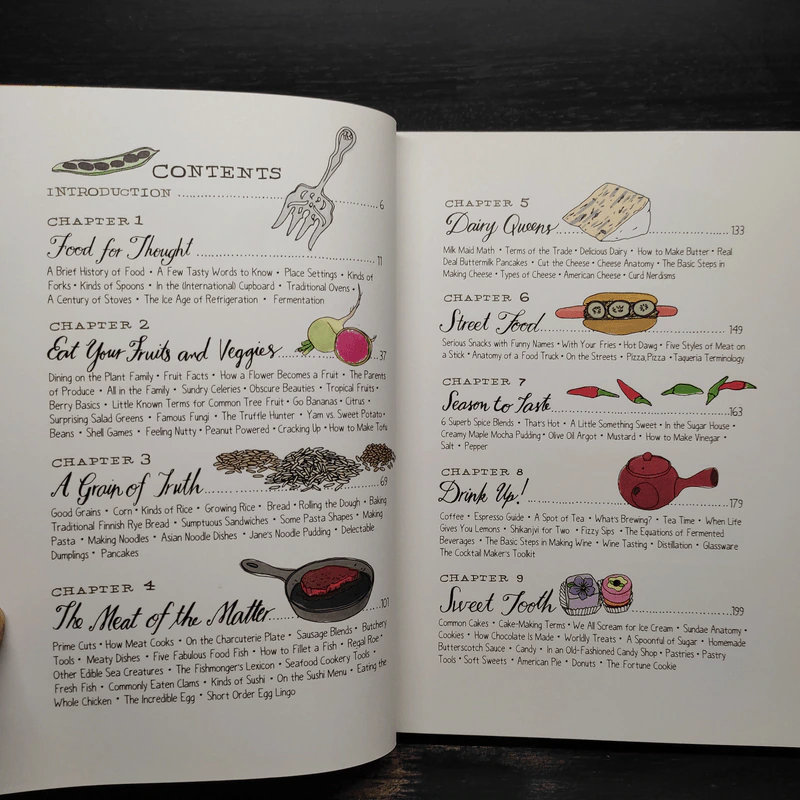 CONTENTS
INTRODUCTION 6
CHAPTER 1
Food for Thought 11
A Brief History of Food • A Few Tasty Words to Know • Place Settings • Kinds of
Forks • Kinds of Spoons • In the (International) Cupboard • Traditional Ovens •
A Century of Stoves • The Ice Age of Refrigeration • Fermentation
CHAPTER 2
Eat Your Fruits and Veggies 37
Dining on the Plant Family • Fruit Facts • How a Flower Becomes a Fruit • The Parents
of Produce • All in the Family • Sundry Celeries • Obscure Beauties • Tropical Fruits •
Berry Basics • Little Known Terms for Common Tree Fruit • Go Bananas • Citrus •
Surprising Salad Greens • Famous Fungi • The Truffle Hunter • Yam vs. Sweet Potato •
Beans • Shell Games • Feeling Nutty • Peanut Powered • Cracking Up • How to Make Tofu
CHAPTER 3
A Grain of Truth 69
Good Grains • Corn • Kinds of Rice • Growing Rice • Bread • Rolling the Dough • Baking
Traditional Finnish Rye Bread • Sumptuous Sandwiches • Some Pasta Shapes • Making
Pasta • Making Noodles • Asian Noodle Dishes • Jane's Noodle Pudding • Delectable
Dumplings • Pancakes
CHAPTER 4
The Meat of the Matter 101
Prime Cuts • How Meat Cooks • On the Charcuterie Plate • Sausage Blends • Butchery
Tools • Meaty Dishes • Five Fabulous Food Fish • How to Fillet a Fish • Regal Roe •
Other Edible Sea Creatures • The Fishmonger's Lexicon • Seafood Cookery Tools •
Fresh Fish • Commonly Eaten Clams • Kinds of Sushi • On the Sushi Menu • Eating the
Whole Chicken • The Incredible Egg • Short Order Egg Lingo
CHAPTER 5
Dairy Queens 133
Milk Maid Math • Terms of the Trade • Delicious Dairy • How to Make Butter • Real
Deal Buttermilk Pancakes • Cut the Cheese • Cheese Anatomy • The Basic Steps in
Making Cheese • Types of Cheese • American Cheese • Curd Nerdisms
CHAPTER 6
Street Food 149
Serious Snacks with Funny Names • With Your Fries • Hot Dawg • Five Styles of Meat on
a Stick • Anatomy of a Food Truck • On the Streets • Pizza,Pizza • Taqueria Terminology
CHAPTER 7
Season to Taste 163
6 Superb Spice Blends • That's Hot • A Little Something Sweet • In the Sugar House •
Creamy Maple Mocha Pudding • Olive Oil Argot • Mustard • How to Make Vinegar •
Salt • Pepper
CHAPTER 8
Drink Up! 179
Coffee • Espresso Guide • A Spot of Tea • What's Brewing? • Tea Time • When Life
Gives You Lemons • Shikanjvi for Two • Fizzy Sips • The Equations of Fermented
Beverages • The Basic Steps in Making Wine • Wine Tasting • Distillation • Glassware
The Cocktail Maker's Toolkit
CHAPTER 9
Sweet Tooth 199
Common Cakes • Cake-Making Terms • We All Scream for Ice Cream • Sundae Anatomy •
Cookies • How Chocolate Is Made • Worldly Treats • A Spoonful of Sugar • Homemade
Butterscotch Sauce • Candy • In an Old-Fashioned Candy Shop • Pastries • Pastry
Tools • Soft Sweets • American Pie • Donuts • The Fortune Cookie